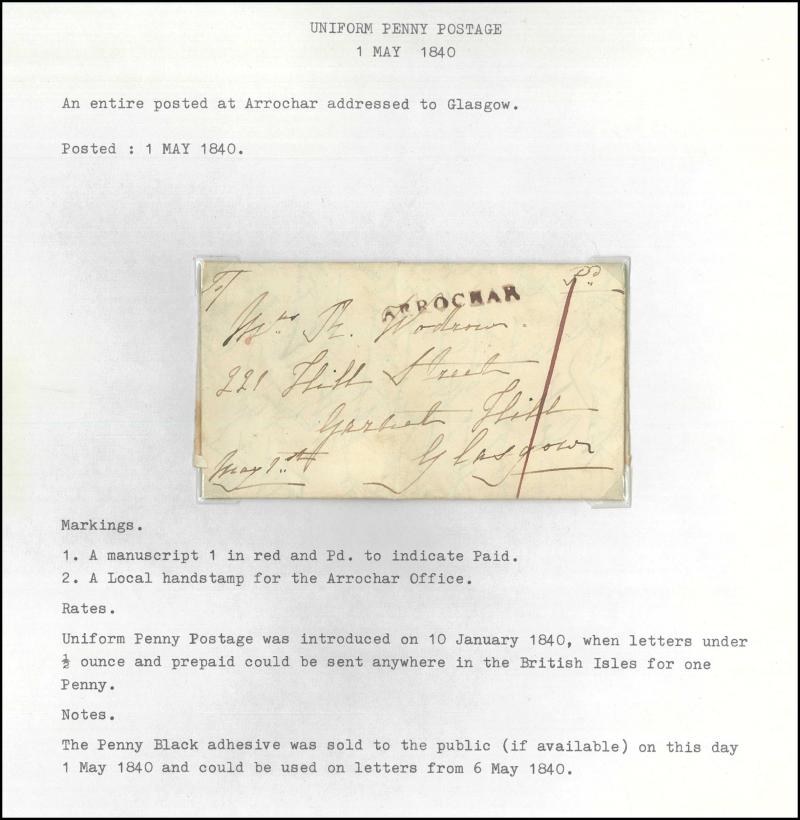 UNIFORM PENNY POSTAGE
1 MAY 1840
An entire posted at Arrochar addressed to Glasgow.
Posted : 1 MAY 1840.
To/
Pd
ARROCHAR
Mrs R. Wodrow.
221 Hill Street
Garnet Hill
Glasgow
May 1st
1
Markings.
1. A manuscript 1 in red and Pd. to indicate Paid.
2. A Local handstamp for the Arrochar Office.
Rates.
Uniform Penny Postage was introduced on 10 January 1840, when letters under
½ ounce and prepaid could be sent anywhere in the British Isles for one
Penny.
Notes.
The Penny Black adhesive was sold to the public (if available) on this day
1 May 1840 and could be used on letters from 6 May 1840.